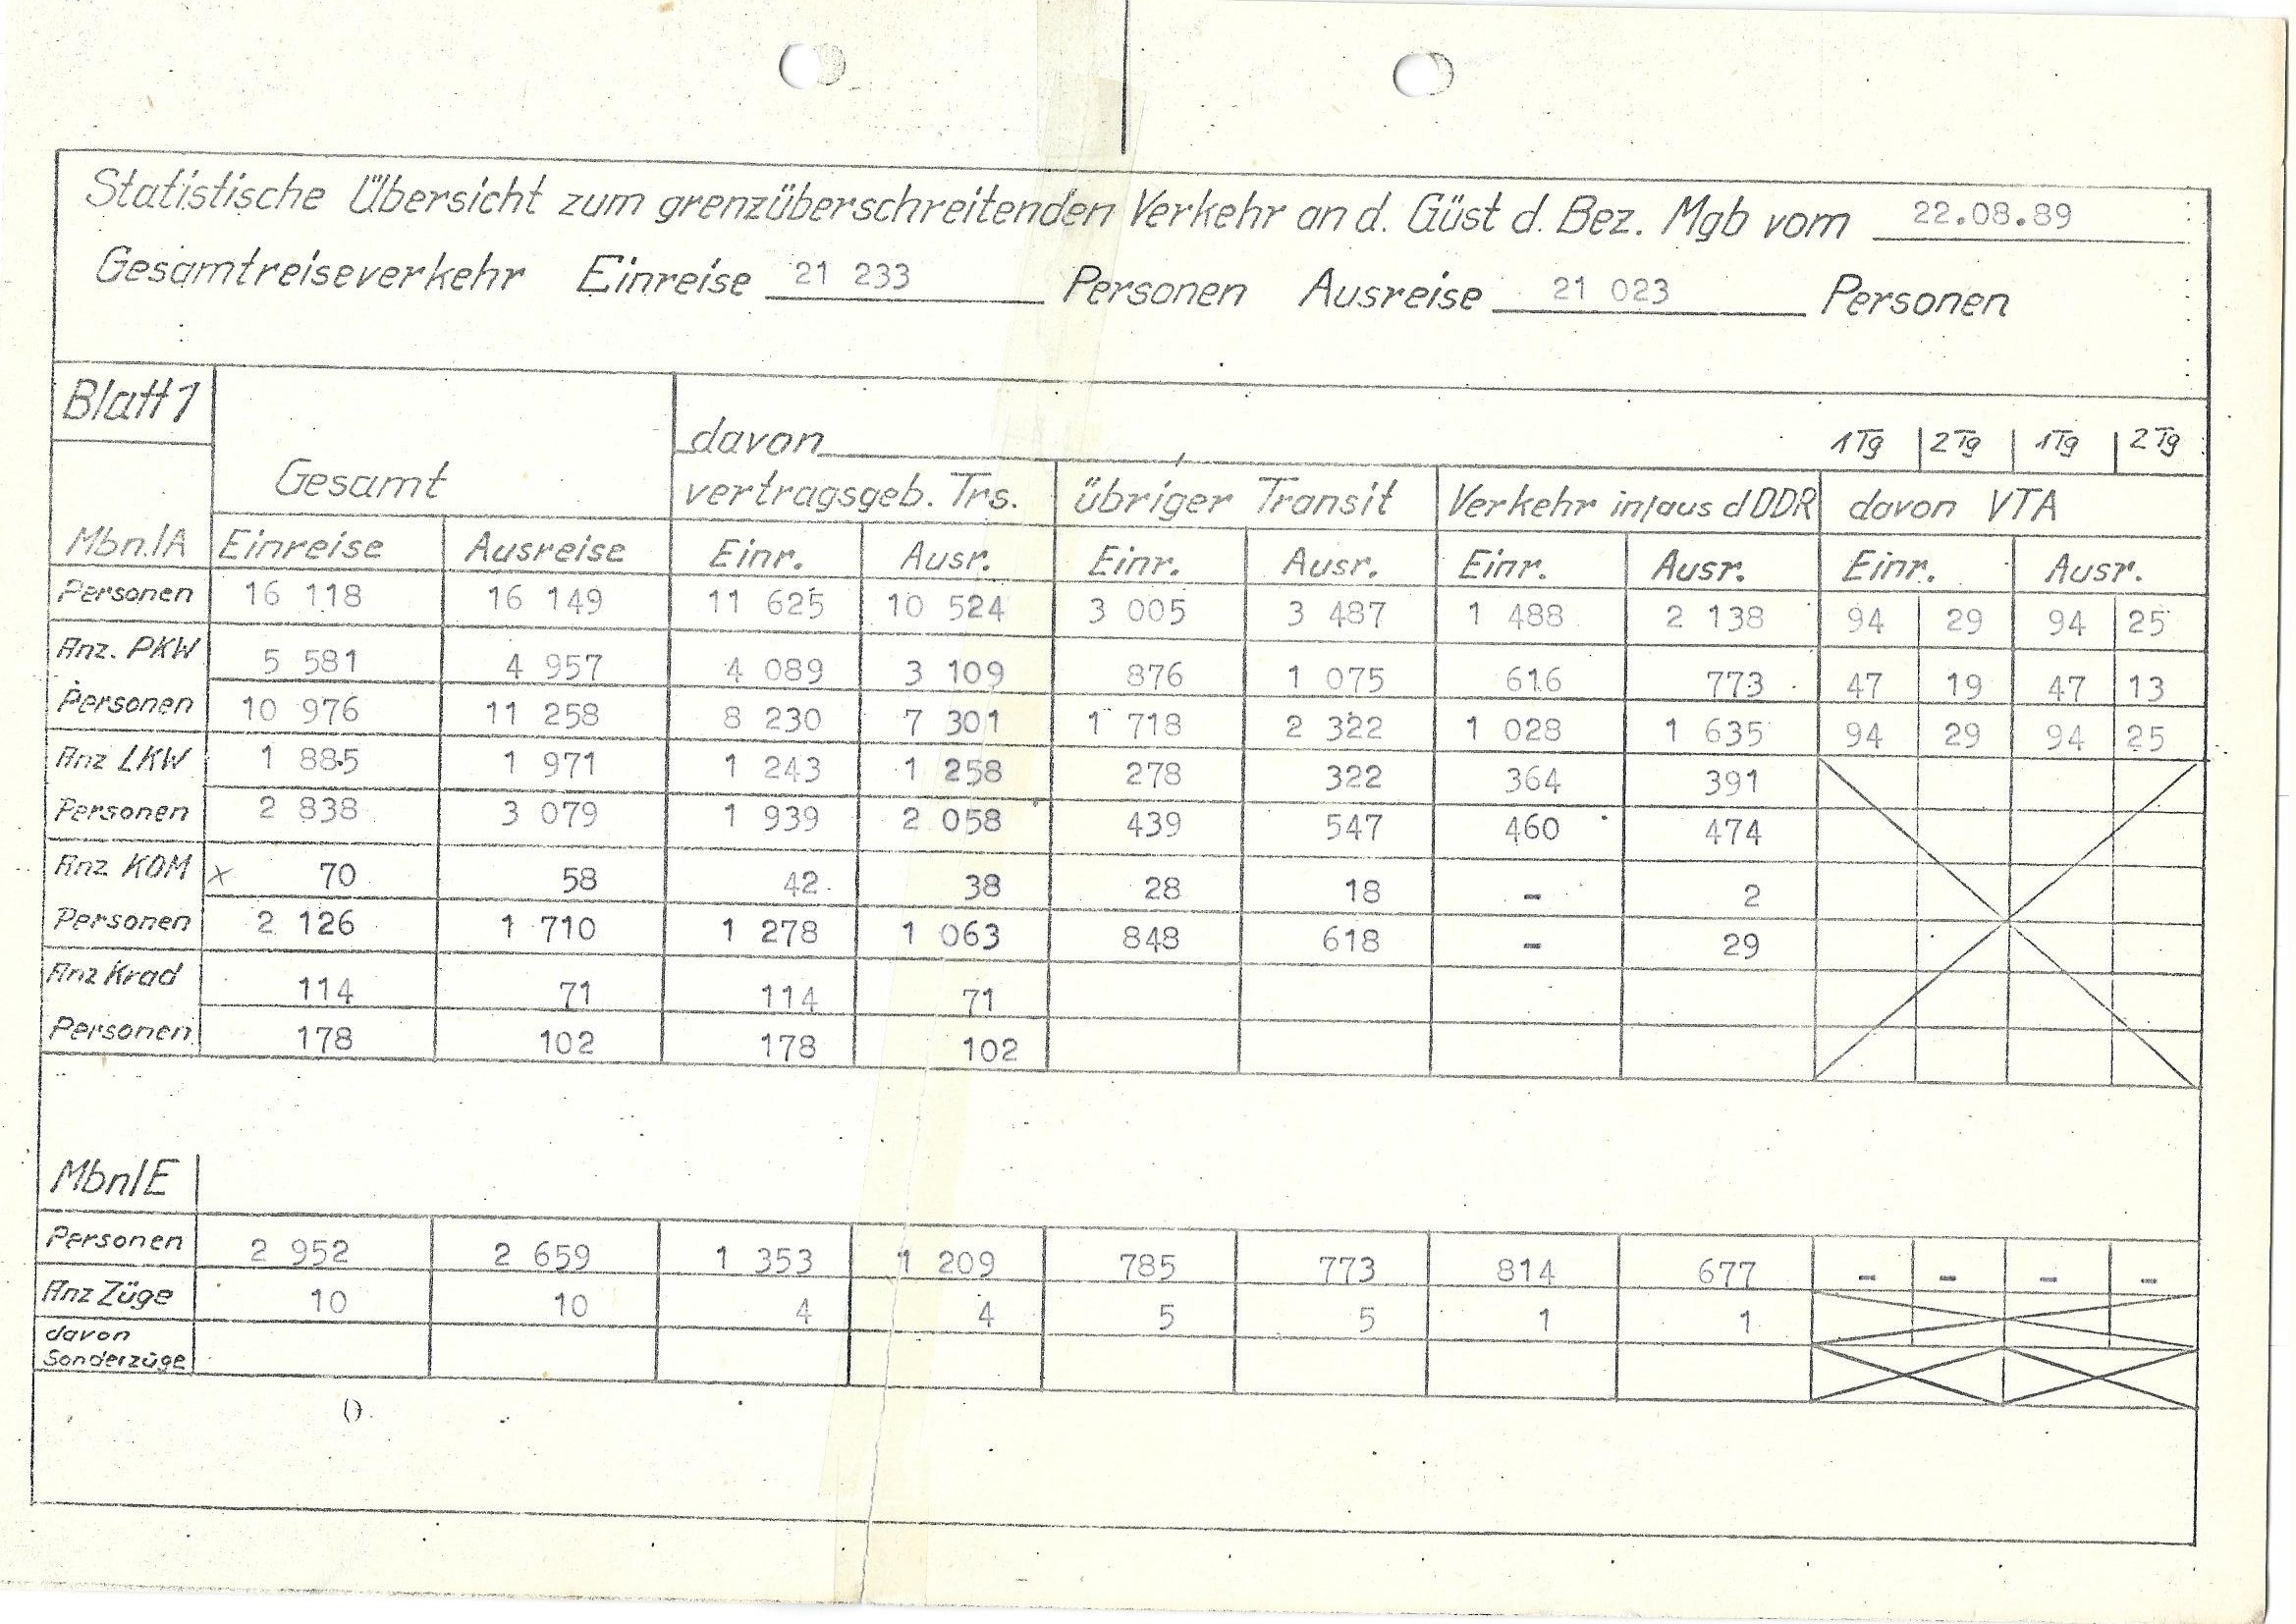 Statistische Übersicht zum grenzüberschreitenden Verkehr an d. Güst d. Bez. Mgb vom 22.08.89
Gesamtreiseverkehr Einreise 21 233 Personen Ausreise 21 023 Personen
Blatt 1
davon 1Tg 2Tg 1Tg 2Tg
Gesamt vertragsgeb. Trs. übriger Transit Verkehr in/aus d DDR davon VTA
Mbn./A Einreise Ausreise Einr. Ausr. Einr. Ausr. Einr. Ausr. Einr. Ausr.
Personen 16 118 16 149 11 625 10 524 3 005 3 487 1 488 2 138 94 29 94 25
Anz. PKW 5 581 4 957 4 089 3 109 876 1 075 616 773 47 19 47 13
Personen 10 976 11 258 8 230 7 301 1 718 2 322 1 028 1 635 94 29 94 25
Anz LKW 1 885 1 971 1 243 1 258 278 322 364 391
Personen 2 838 3 079 1 939 2 058 439 547 460 474
Anz KOM x 70 58 42 38 28 18 - 2
Personen 2 126 1 710 1 278 1 063 848 618 - 29
Anz Krad 114 71 114 71
Personen 178 102 178 102
Mbn/E
Personen 2 952 2 659 1 353 1 209 785 773 814 677 - - - -
Anz Züge 10 10 4 4 5 5 1 1
davon
Sonderzüge